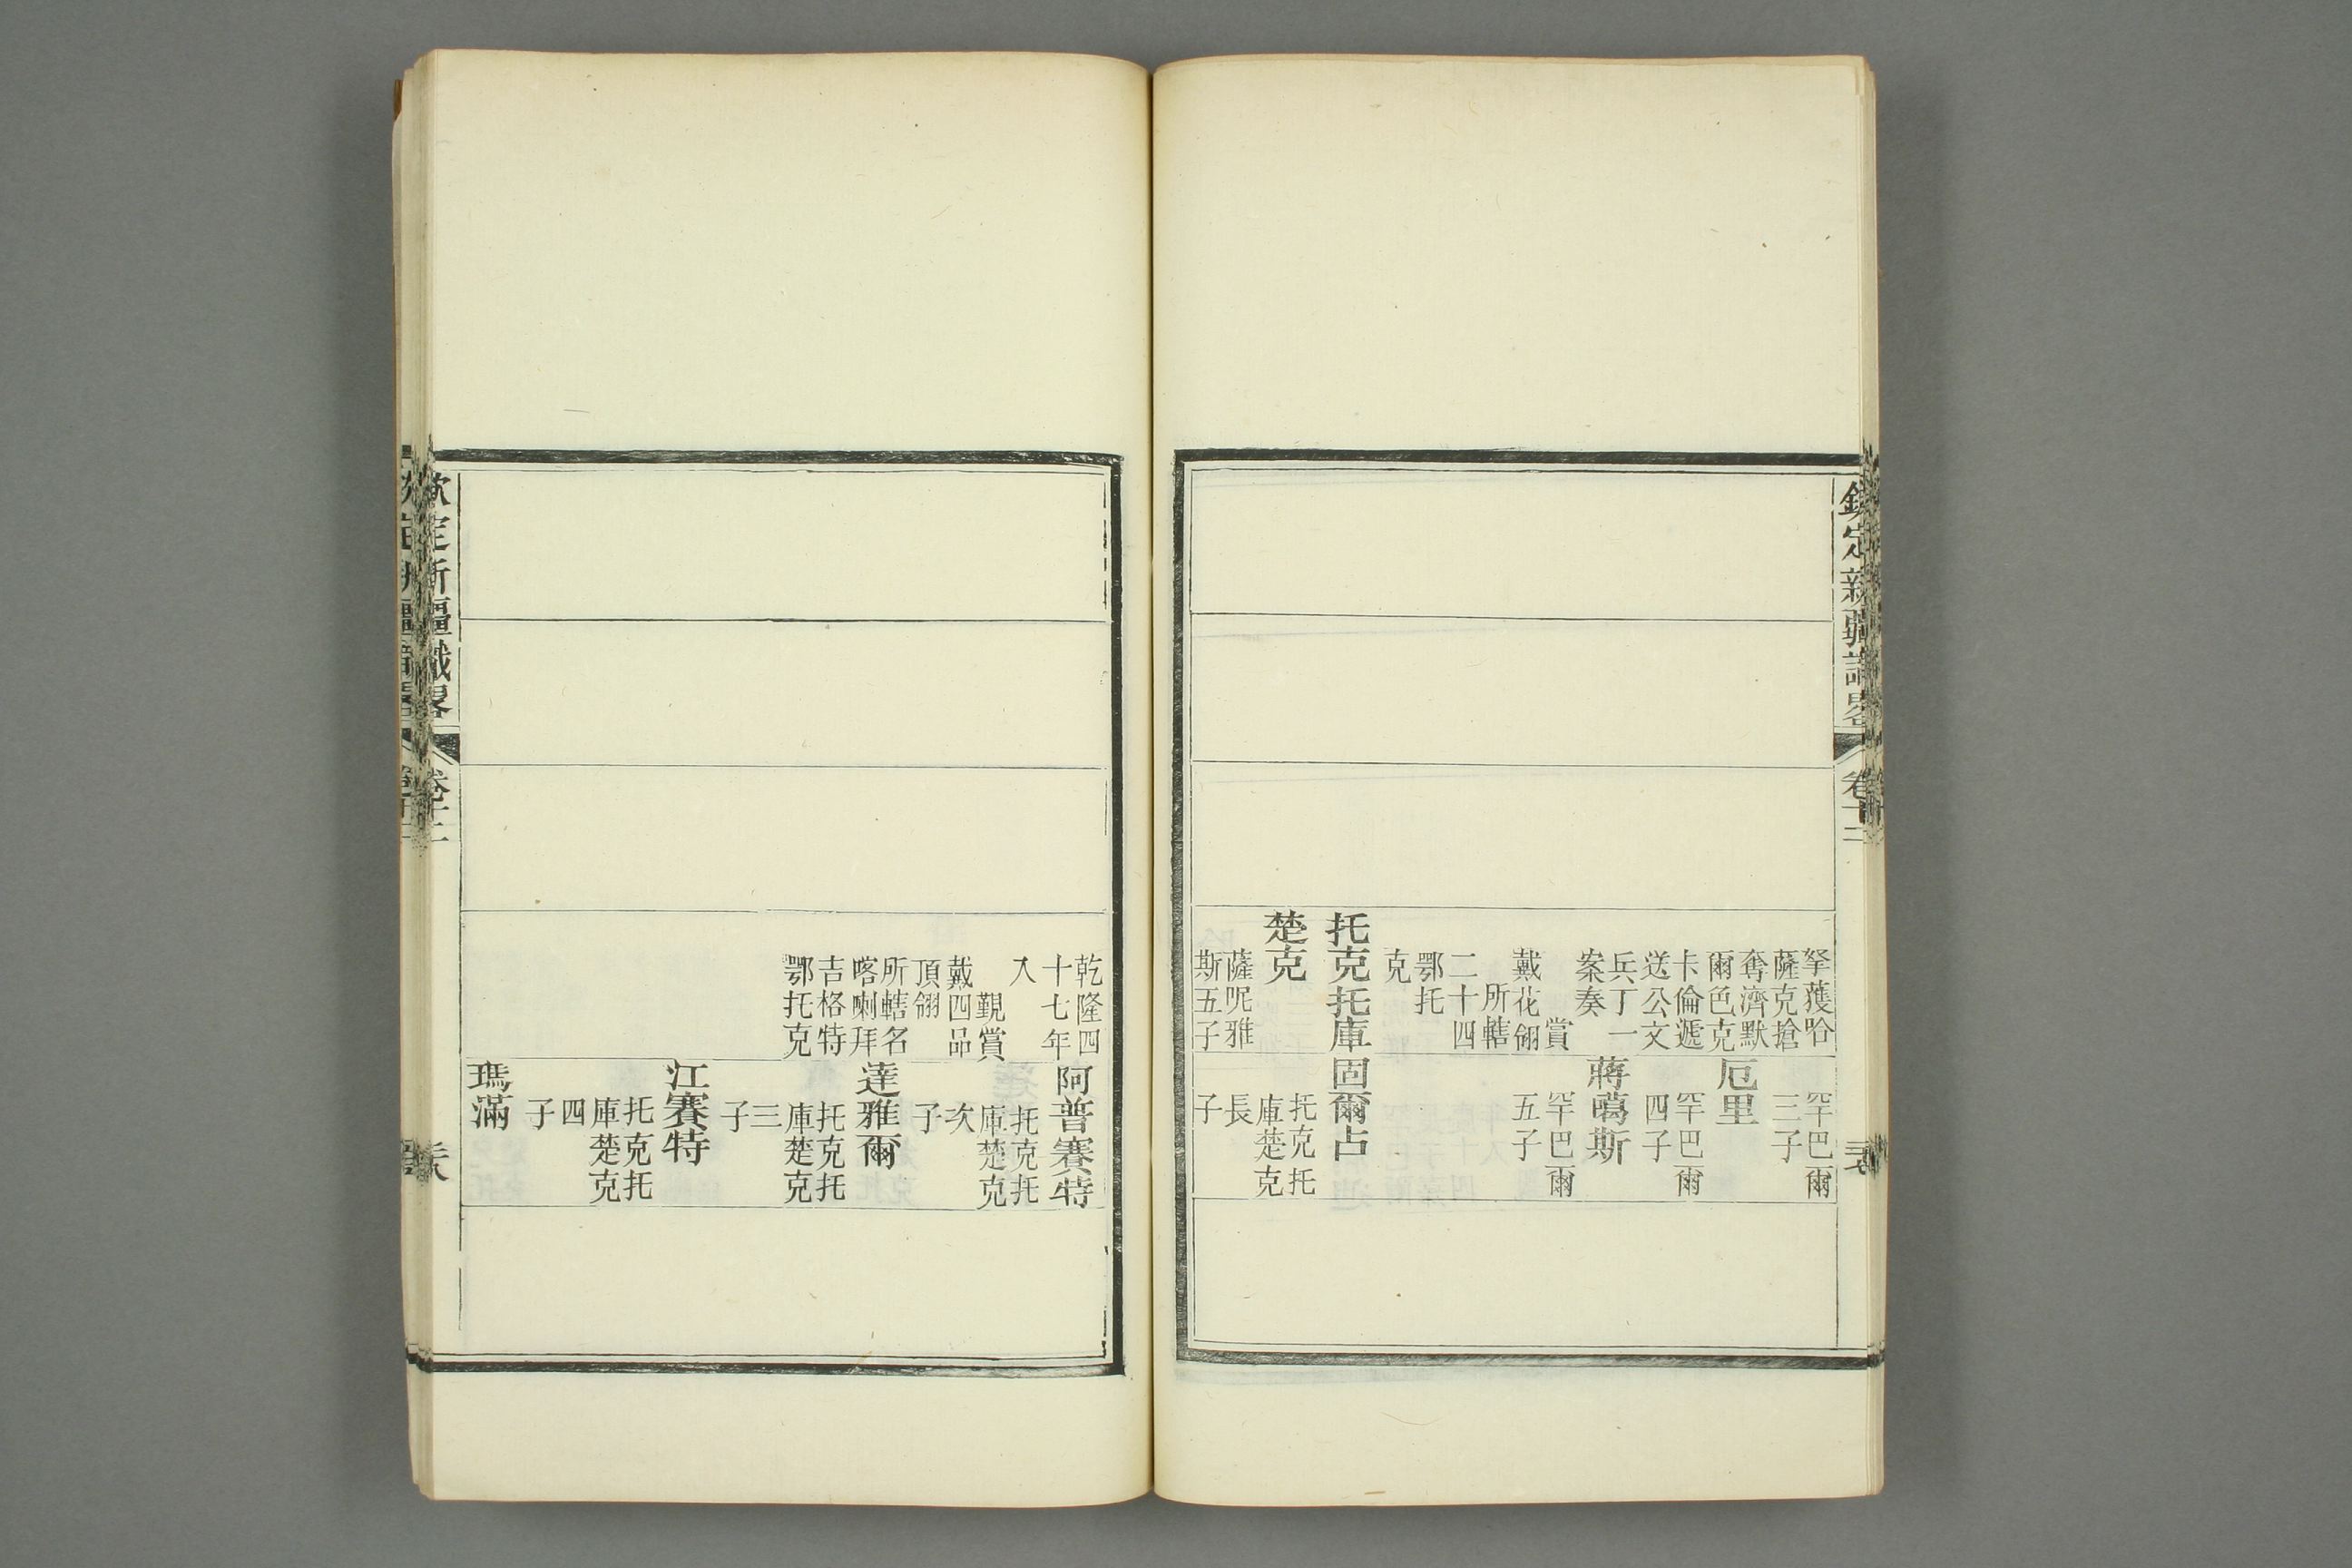 欽定新疆識畧
卷十二
拏獲哈
薩克搶
奪濟默
爾色克
卡倫遞
送公文
兵丁一
案奏
賞
戴花翎
所轄
二十四
鄂托
克
托克托庫
楚克
薩呢雅
斯五子
罕巴爾
三子
厄里
罕巴爾
四子
蔣噶斯
罕巴爾
五子
固爾占
托克托
庫楚克
長
子
乾隆四
十七年
入
覲賞
戴四品
頂翎
所轄名
喀喇拜
吉格特
鄂托克
阿普賽特
托克托
庫楚克
次
子
達雅爾
托克托
庫楚克
三
子
江賽特
托克托
庫楚克
四
子
瑪滿
欽定新疆識畧
卷十二